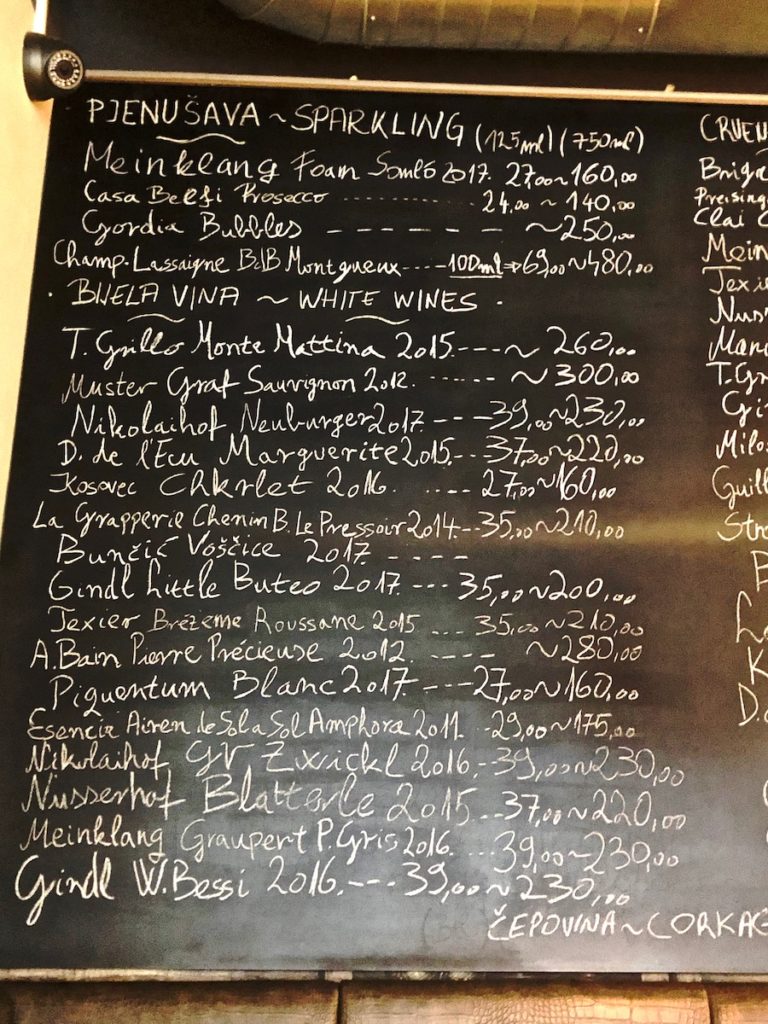 PJENUŠAVA ~ SPARKLING (125ml) (750ml)
Meinklang Foam Somló 2017. 27,00 ~ 160,00
Casa Belfi Prosecco ------------ 24,00 ~ 140,00
Gordia Bubbles - - - - - - - ~ 250,00
Champ. Lassaigne BdB Montgueux ---- 100ml → 69,00 ~ 480,00
· BIJELA VINA ~ WHITE WINES ·
T. Grillo Monte Mattina 2015. --- ~ 260,00
Muster Graf Sauvignon 2012. ------ ~ 300,00
Nikolaihof Neuburger 2017. --- 39,00 ~ 230,00
D. de l'Ecu Marguerite 2015. -- 37,00 ~ 220,00
Kosovec Chkrlet 2016. ---- 27,00 ~ 160,00
La Grapperie Chenin B. Le Pressoir 2014. -- 35,00 ~ 210,00
Bunčić Voščice 2017. ----
Gindl Little Buteo 2017. --- 35,00 ~ 200,00
Texier Brézeme Roussane 2015 ... 35,00 ~ 210,00
A. Bain Pierre Précieuse 2012. ---- ~ 280,00
Piquentum Blanc 2017. --- 27,00 ~ 160,00
Esencia Airen de Sol a Sol Amphora 2011. .. 29,00 ~ 175,00
Nikolaihof GV Zwickl 2016. - 39,00 ~ 230,00
Nusserhof Blatterle 2015. 37,00 ~ 220,00
Meinklang Graupert P. Gris 2016. ... 39,00 ~ 230,00
Gindl W. Bessi 2016. --- 39,00 ~ 230,00
ČEPOVINA ~ CORKAG
CRVEN
Briga
Preising
Clai
Mein
Texie
Nuss
T. Gr
Gi
Milo
Guill
Stro
K
D.